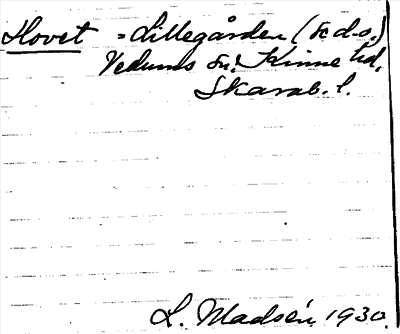 Hovet = Lillegården (k d.s.)
Vedums sn. Kinne hd,
Skarab. l.
L. Madsén 1930.